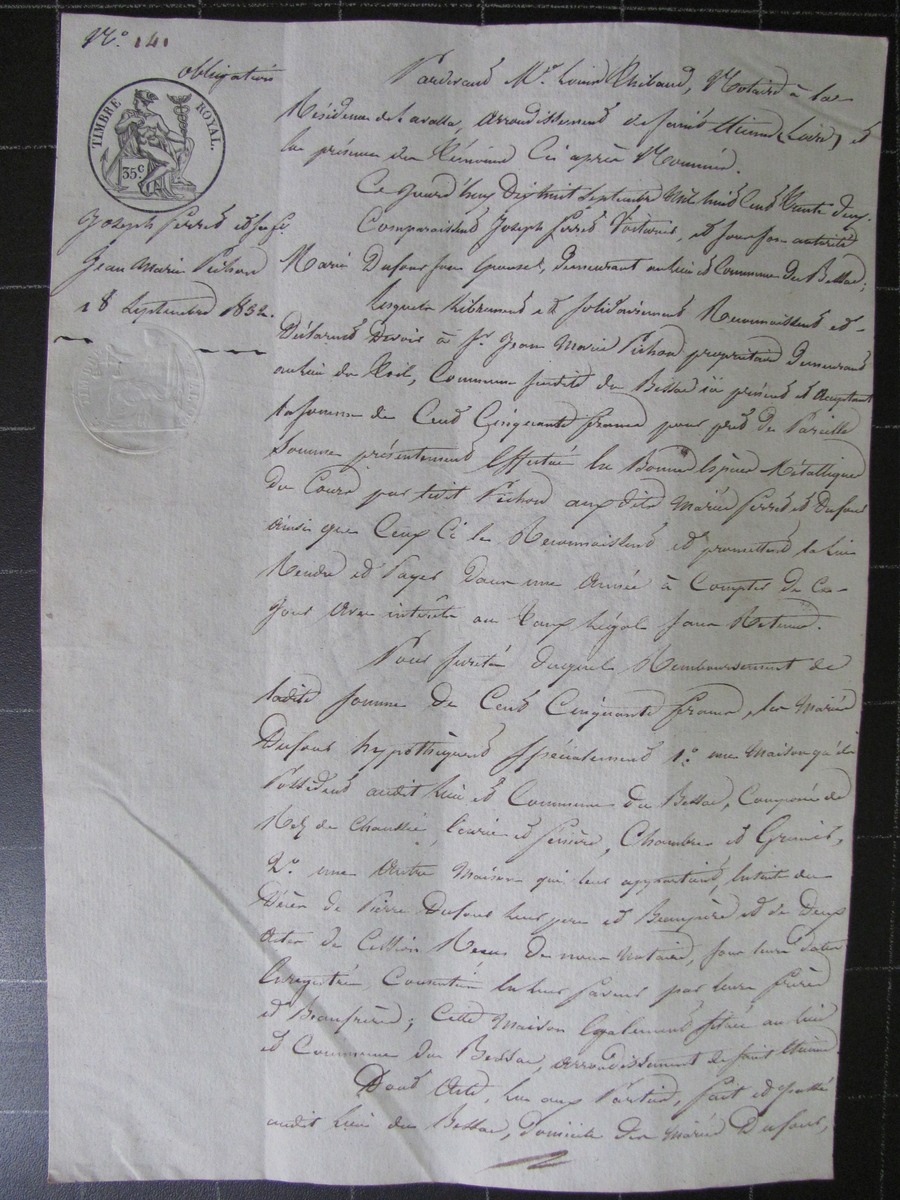 N.° 141
obligation
TIMBRE ROYAL.
35 c.
Joseph Serret et sa fe.
Jean Marie Pichon
18 Septembre 1832.
Pardevant Me. Louis Thibaud, Notaire à la
Résidence de Lavalla, arrondissement de Saint Etienne (Loire) et
en présence des témoins ci après Nommés.
Ce jourd'huy Dixhuit Septembre Mil huit Cent trente deux.
Comparaissent Joseph Serret Voiturier, et sous son autorité
Marie Dufour son épouse, demeurant au lieu et Commune du Bessac;
Lesquels librement et solidairement Reconnaissent et
Déclarent Devoir à Sr. Jean Marie Pichon propriétaire Demeurant
au lieu du Toil, Commune susdite du Bessac ici présent et acceptant
la somme de Cent Cinquante francs pour prêt de Pareille
Somme présentement Effectué en Bonnes Espèces Métallique
du Cours par ledit Pichon aux dits Mariés Serret et Dufour
ainsi que Ceux Ci le Reconnaissent et promettent la lui
Rendre et Payer dans une année à Compter de Ce
jour avec intérêts au Taux légal sans Retenue.
Pour sureté duquel Remboursement de
ladite somme de Cent Cinquante francs, les Mariés
Dufour hypothèquent spécialement 1.° une Maison qu'ils
Possèdent audit lieu et Commune du Bessac, Composée de
Rez de Chaussée, Ecurie et fenière, Chambre et Grenier,
2.° une autre Maison qui leur appartient, Ensuite du
Décès de Pierre Dufour leur père et Beaupère et de Deux
actes de Cession Reçus de nous Notaire, sous leurs dates
Enregistrés, Consentis en leur faveur par leurs frères
et Beaufrères; Cette Maison Egalement située au lieu
et Commune du Bessac, arrondissement de Saint Etienne
Dont Acte, lu aux Parties, fait et passé
audit lieu du Bessac, domicile des Mariés Dufour,